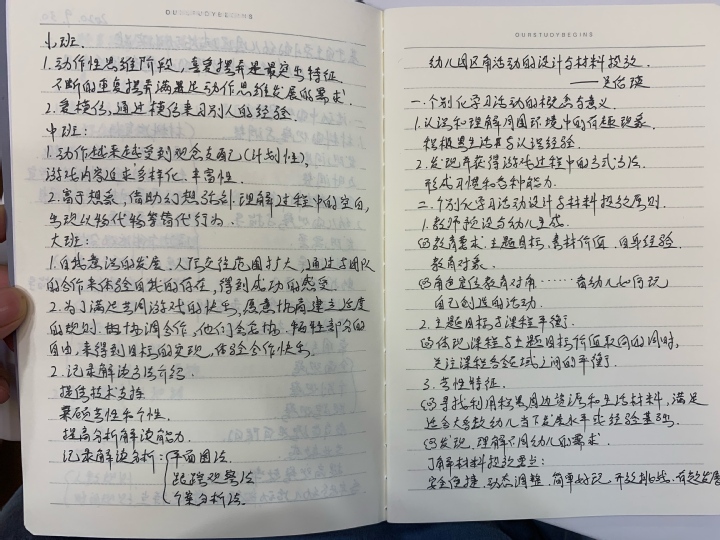 OURSTUDYBEGINS
小班.
1.动作性思维阶段,喜爱摆弄是最突出特征.
不断的重复摆弄满足其动作思维发展的需求.
2.爱模仿,通过模仿来习别人的经验.
中班:
1.动作越来越受到观念支配(计划性),
游戏内容追求多样化、丰富性.
2.富于想象,借助幻想弥补理解过程中的空白,
出现以物代物等替代行为.
大班:
1.自我意识的发展,人际交往范围扩大,通过与团队
的合作来体验自我的存在,得到成功的感受.
2.为了满足共同游戏的快乐,愿意协商建立适度
的规则.协调合作,他们会妥协、牺牲部分的
自由,来得到目标的实现,体验合作快乐.
2.记录解读方法介绍.
提供技术支持
兼顾共性和个性.
提高分析解读能力.
记录解读分析:平面图法
跟踪观察法
个案分析法.
OURSTUDYBEGINS
幼儿园区角活动的设计与材料投放.
一.个别化学习活动的概念与意义.
1.认识和理解周围环境中的有趣现象.
积极思生活与认识经验.
2.发现并获得游戏过程中的方式方法.
形成习惯和各种能力.
二.个别化学习活动设计与材料投放原则.
1.教师预设与幼儿生成.
教育需求.主题目标.素材价值.自身经验.
教育对象.
角色定位教育对象……看幼儿如何玩
自己创造的活动.
2.主题目标与课程平衡.
体现课程与主题目标价值取向的同时,
关注课程各领域之间的平衡.
3.共性特征.
寻找利用积累周边资源和生活材料,满足
适合大多数幼儿当下发展水平或经验基础.
发现.理解不同幼儿的需求.
了解材料投放要点:
安全便捷.动态调整.简单好玩.开放挑战.有效发展